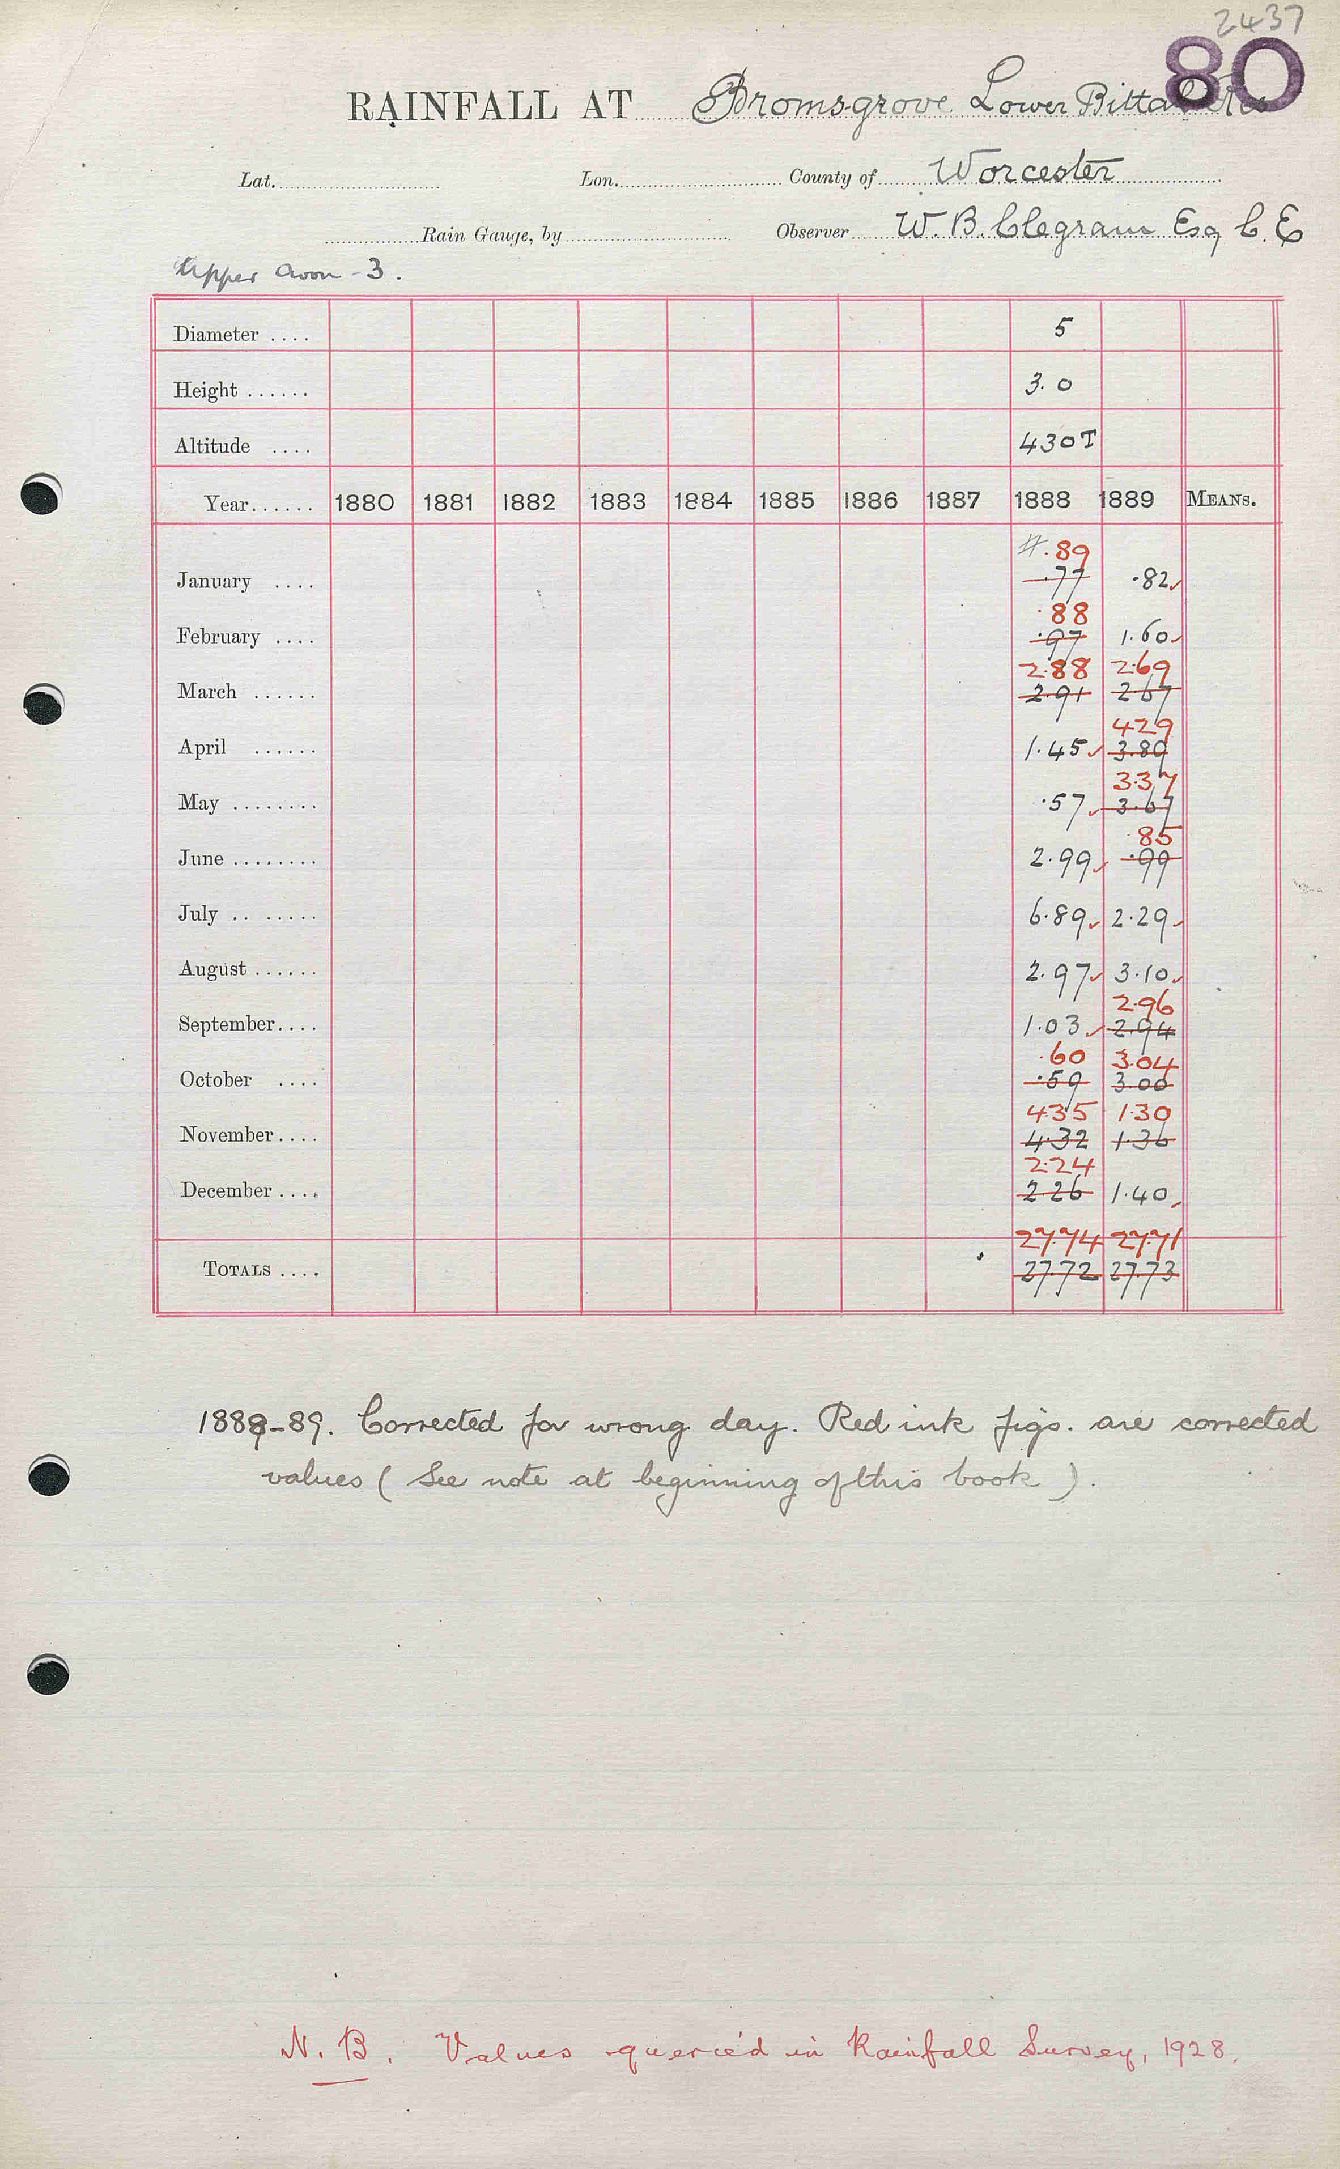 2437
80
RAINFALL AT Bromsgrove Lower Bittal Res
Lat. Lon. County of Worcester
Rain Gauge, by Observer W. B. Clegram Esq C. E
Upper Avon - 3.
Diameter .... 5
Height ...... 3.0
Altitude .... 430T
Year...... 1880 1881 1882 1883 1884 1885 1886 1887 1888 1889 MEANS.
#.89
January .... .77 .82
.88
February .... .97 1.60
2.88 2.69
March ...... 2.91 2.67
4.29
April ...... 1.45 3.89
3.37
May ........ .57 3.67
.85
June ........ 2.99 .99
July .. ...... 6.89 2.29
August ...... 2.97 3.10
2.96
September.... 1.03 2.94
.60 3.04
October .... .59 3.00
4.35 1.30
November.... 4.32 1.36
2.24
December .... 2.26 1.40
27.74 27.71
TOTALS .... 27.72 27.73
1888-89. Corrected for wrong day. Red ink figs. are corrected
values ( See note at beginning of this book ).
N. B. Values queried in Rainfall Survey, 1928.